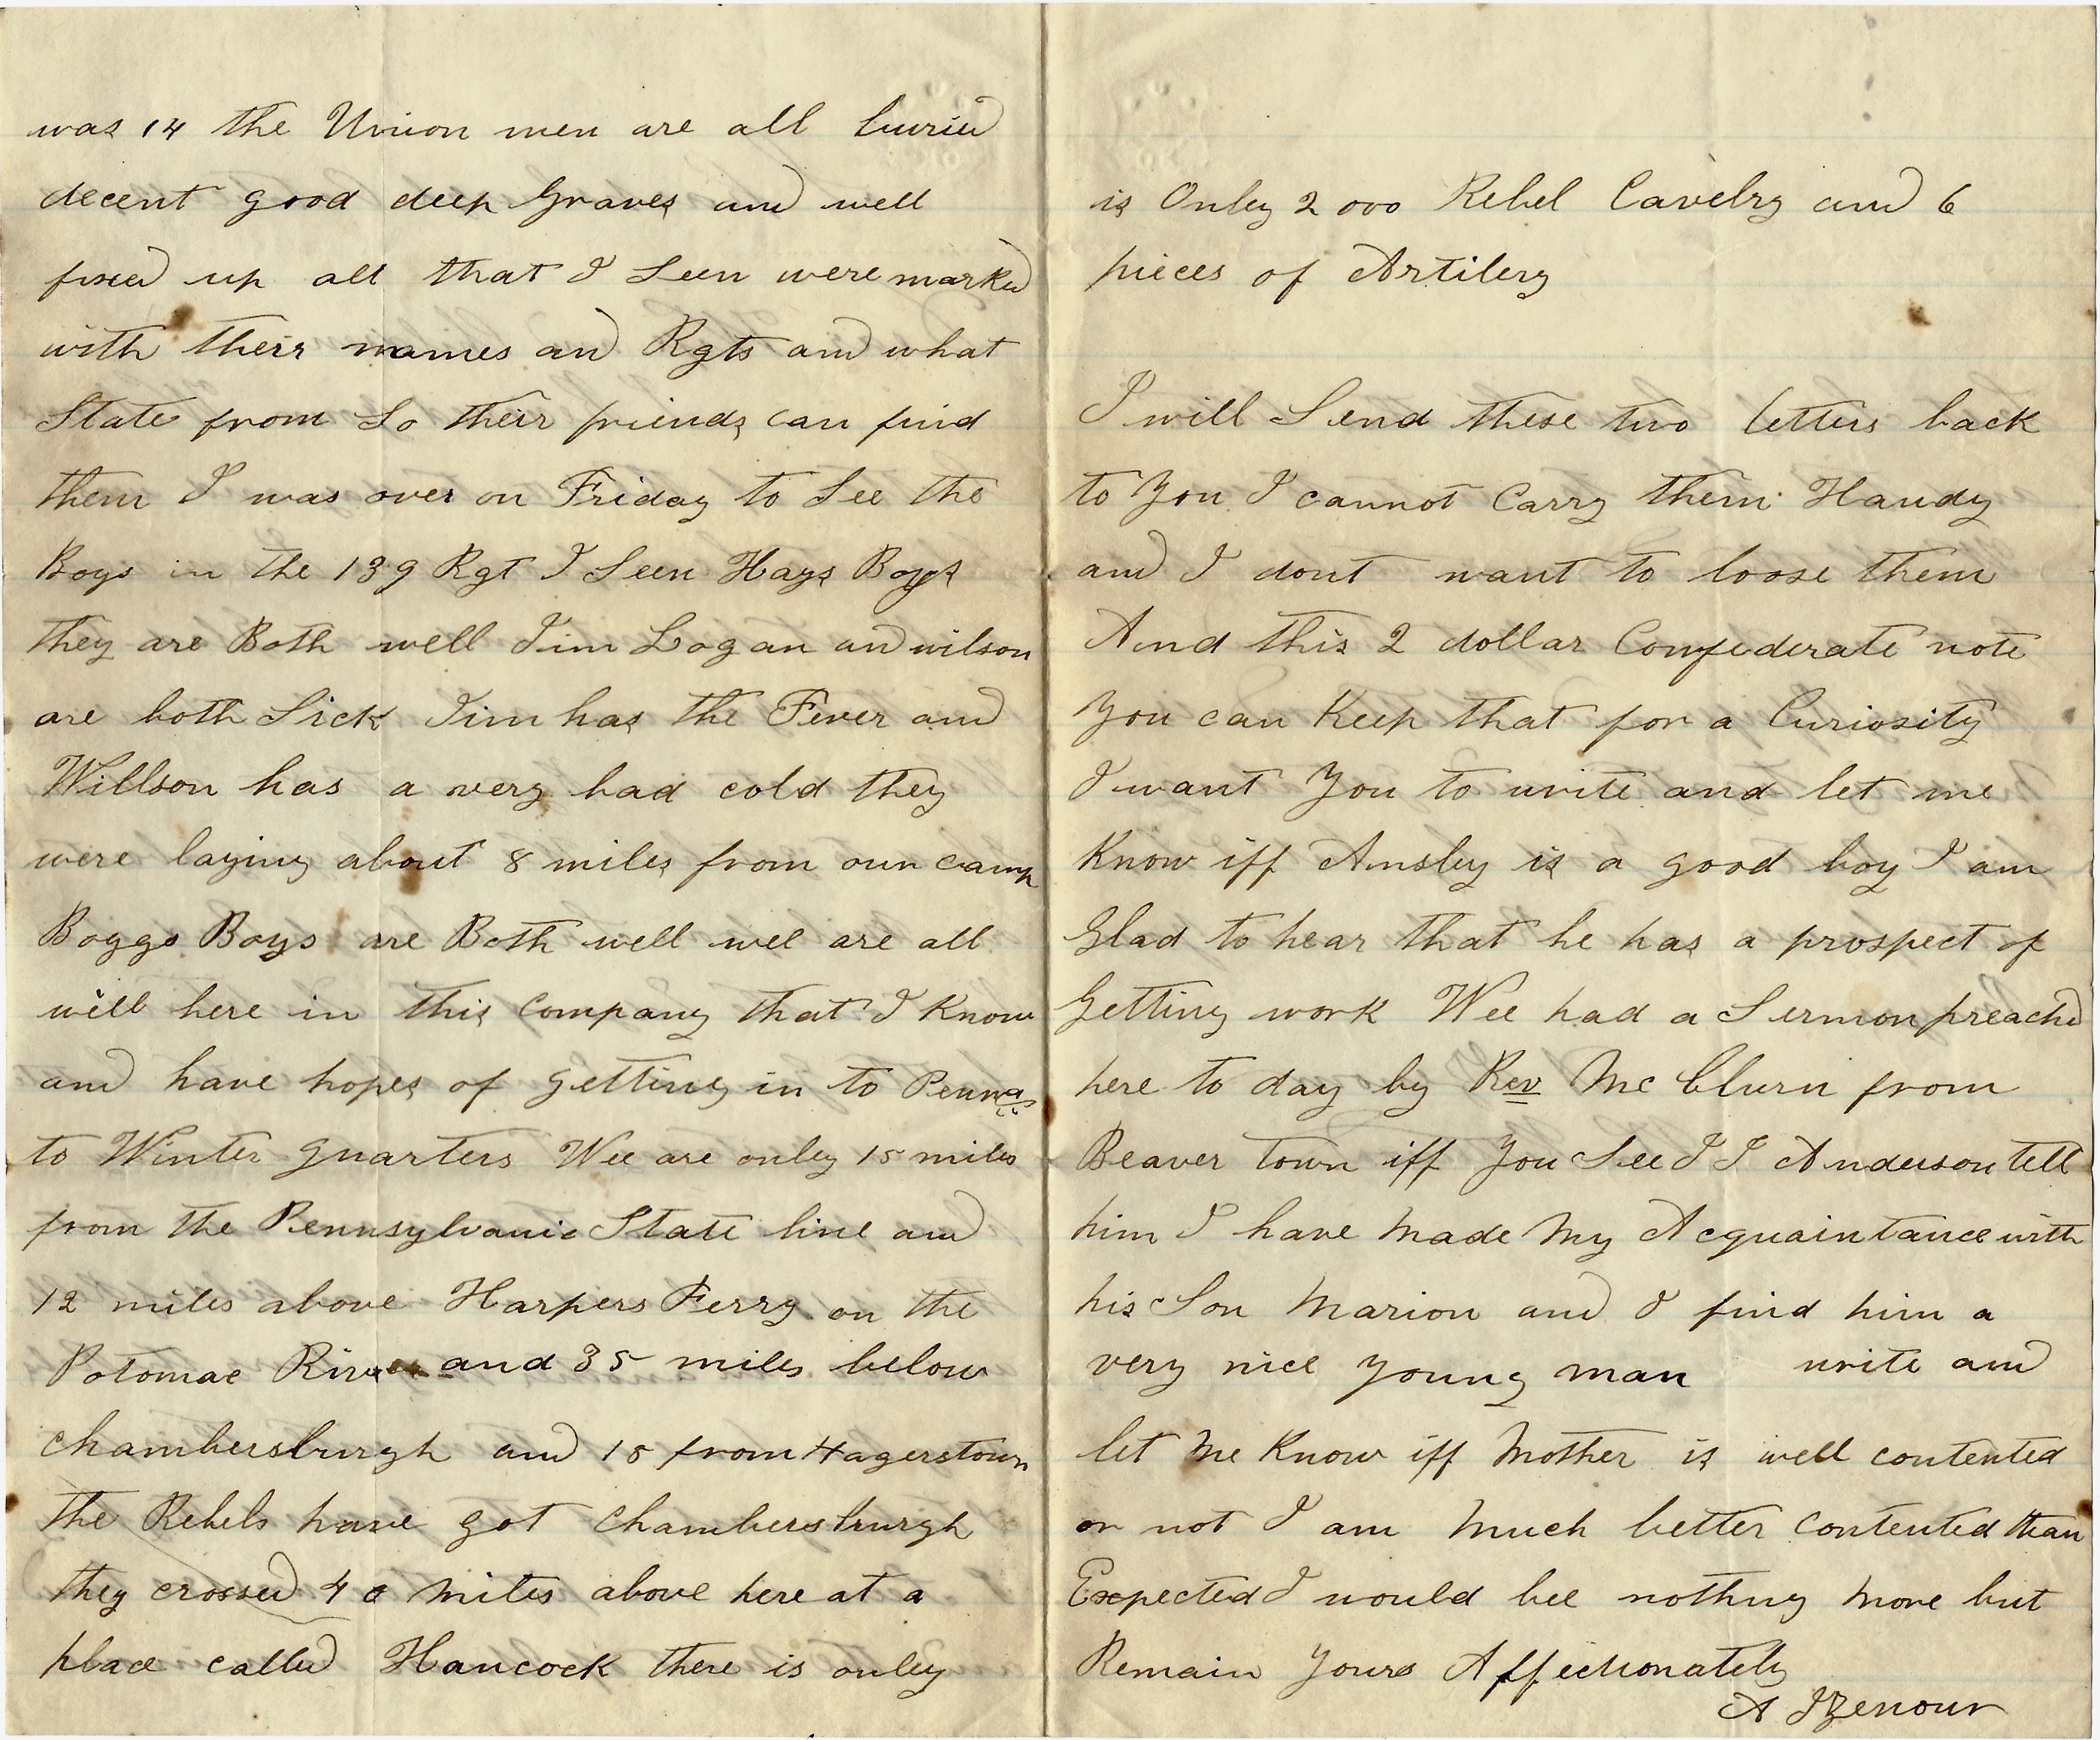 was 14 the Union men are all buried
decent good deep Graves and well
fixed up all that I Seen were marked
with theirr names and Rgts and what
State from So theirr friends can find
them I was over on Friday to See the
Boys in the 139 Rgt I Seen Hays Boys
they are Both well Jim Logan and wilson
are both Sick Jim has the Fever and
Willson has a very bad cold they
were laying about 8 miles from our camp
Boggs Boys are Both well wee are all
well here in this Company that I Know
and have hopes of Getting in to Penna
to Winter quarters Wee are onley 15 miles
from the Pennsylvania State line and
12 miles above Harpers Ferry on the
Potomac River and 35 miles below
Chambersburgh and 15 from Hagerstown
the Rebels have got Chambersburgh
they crossed 40 miles above here at a
place called Hancock there is onley
is Onley 2000 Rebel Cavelry and 6
pieces of Artilery
I will Send these two letters back
to You I cannot Carry them Handy
and I dont want to loose them
And this 2 dollar Confederate note
You can Keep that for a Curiosity
I want You to write and let me
Know iff Ansley is a good boy I am
Glad to hear that he has a prospect of
Getting work Wee had a Sermon preached
here to day by Rev Mc Clurn from
Beaver town iff You See J J Anderson tell
him I have made My Acquaintance with
his Son Marion and I find him a
very nice young man write and
let Me Know iff Mother is well contented
or not I am Much better Contented than
Expected I would bee nothing More but
Remain Yours Affectionately
A IZenour